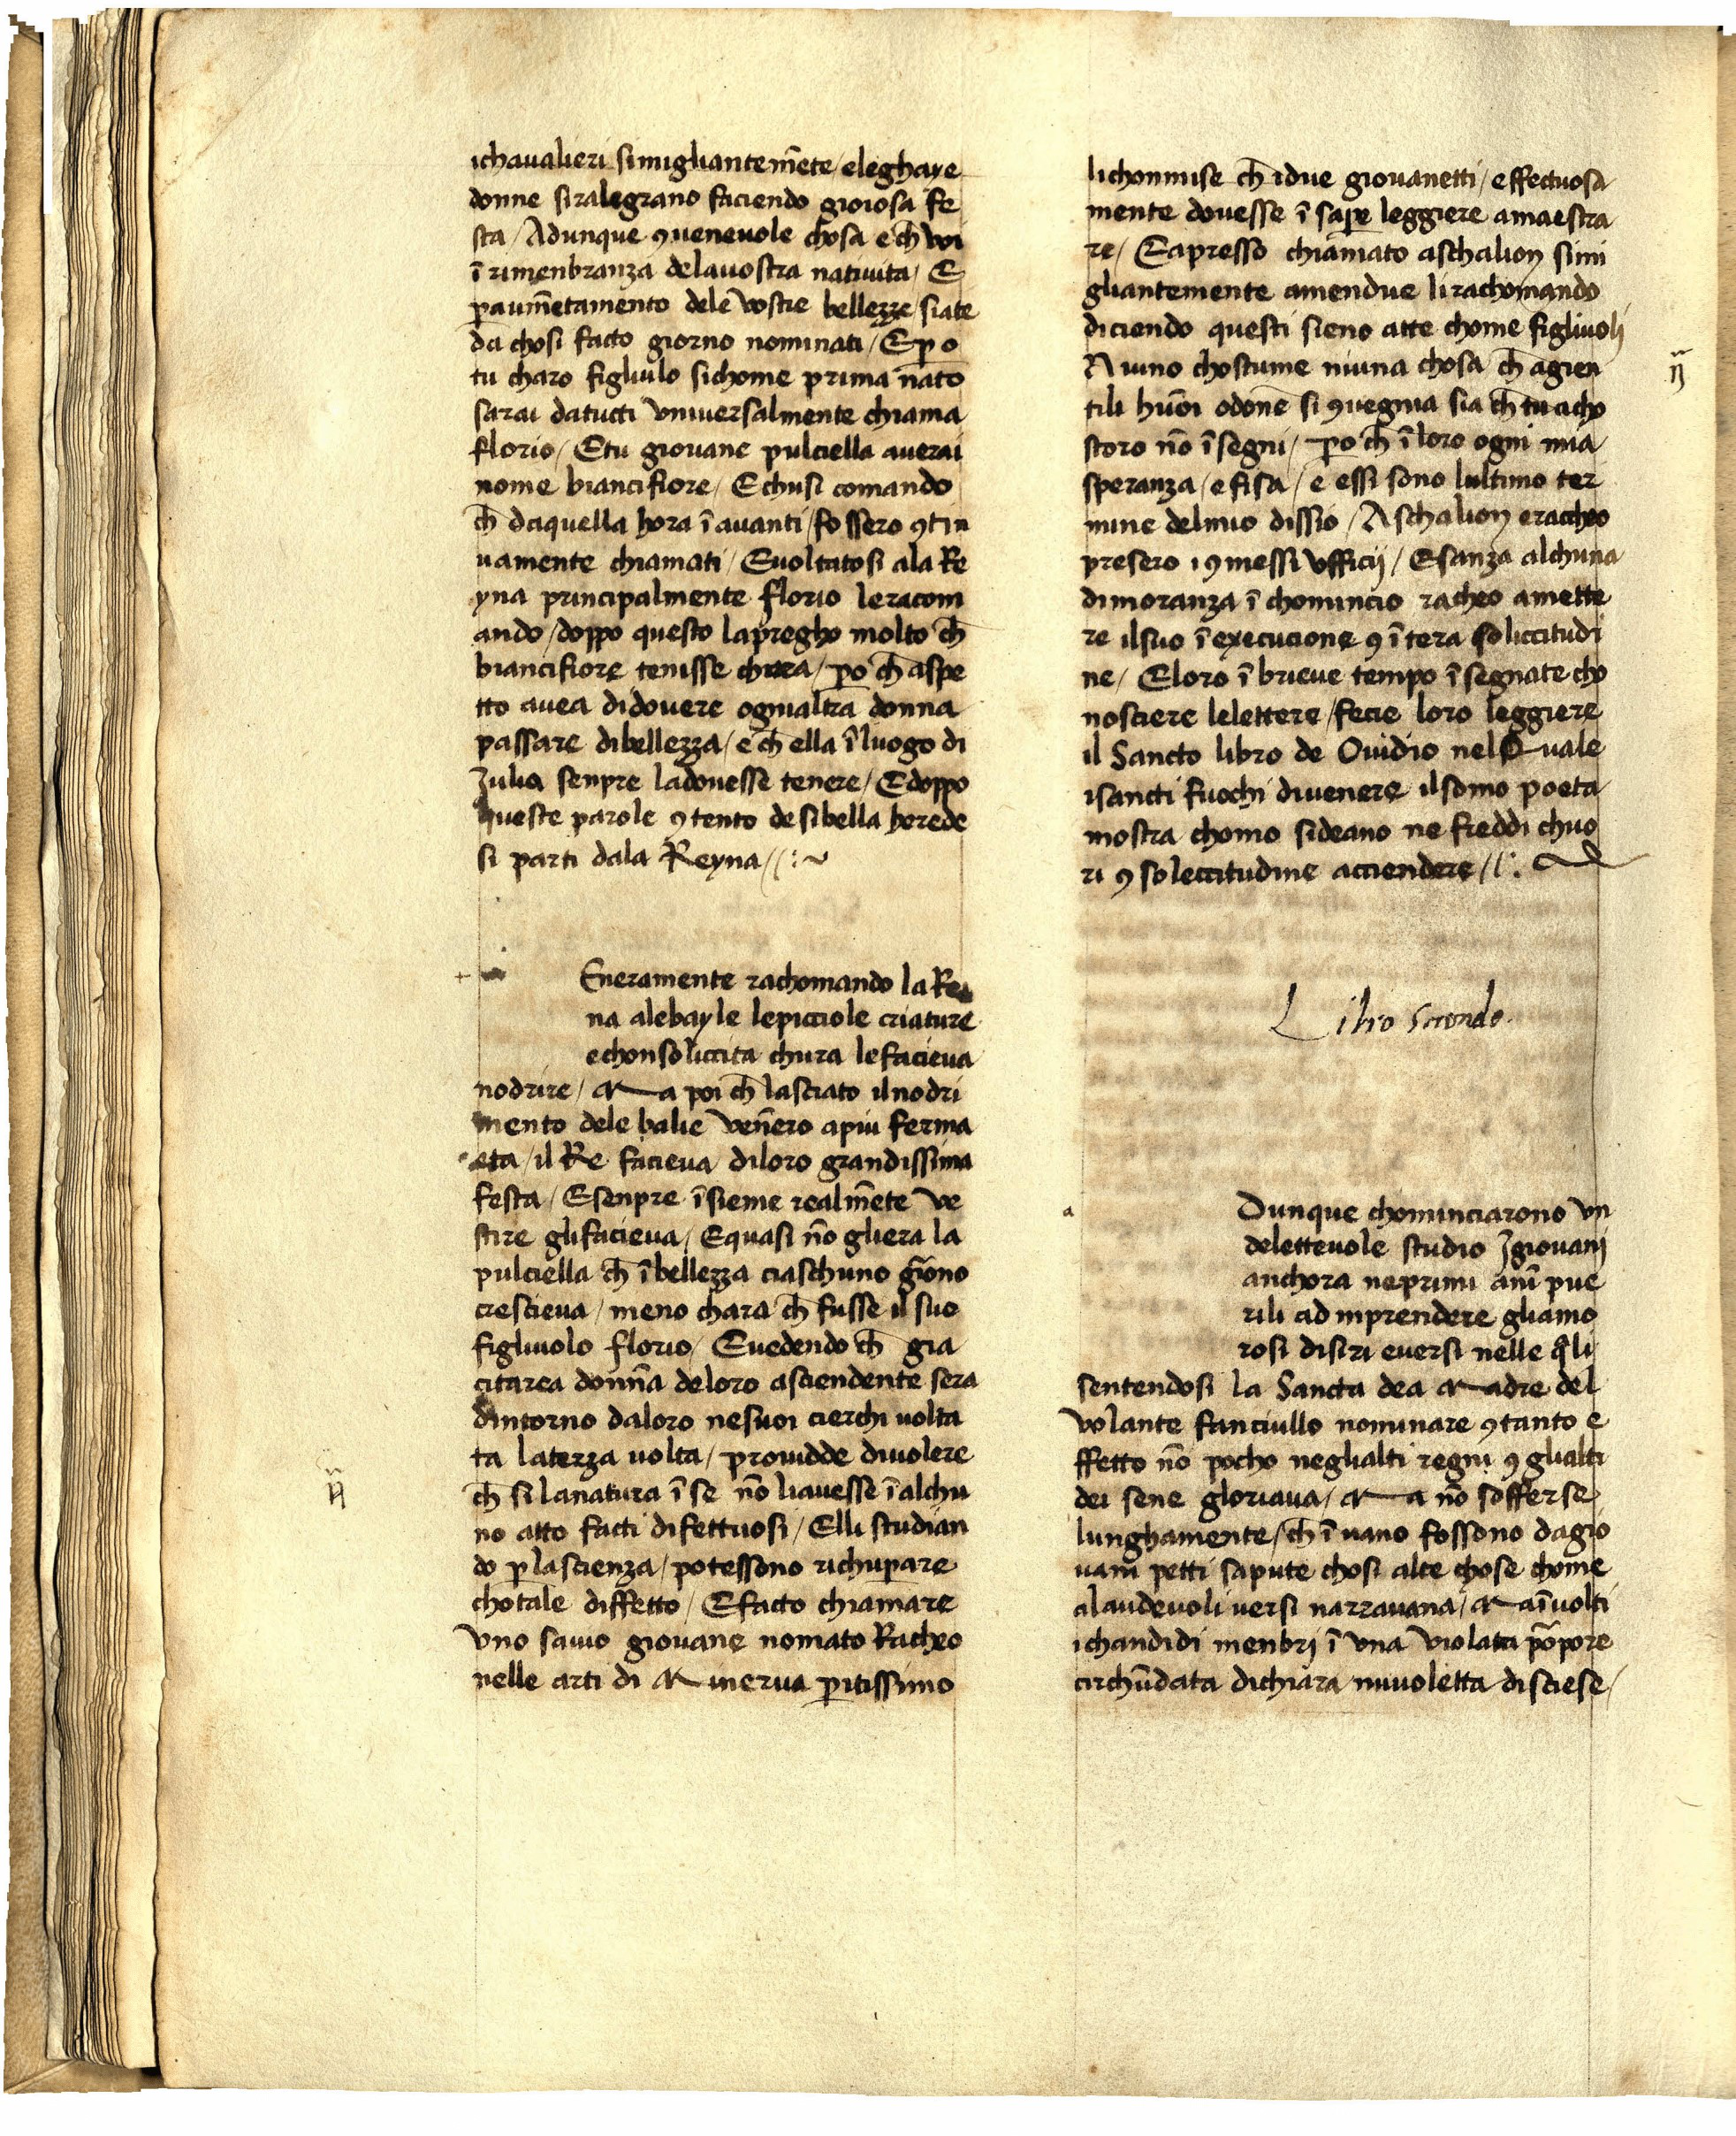 ichaualieri simigliantem̄ete / eleghaye
donne siralegrano faciendo gioiosa fe
sta / Adunque ꝯueneuole chosa e ch̄ voi
ī rimenbranza delauostra natiuita / E
ꝑaum̄etamento dele vostre bellezze siate
da chosi facto giorno nominati / Eꝑo
tu charo figliulo sichome prima nato
sarai datucti vniuersalmente chiama
florio / Etu giouane pulciella auerai
nome biancifiore / Echusi comando
ch̄ daquella hora ī auanti / fossero ꝯtin
uamente chiamati / Euoltatosi ala Re
yna principalmente florio leracom
ando / doppo questo lapregho molto ch̄
biancifiore tenisse chara / ꝑo ch̄ aspe
tto auea didouere ognialtra donna
passare dibellezza / e ch̄ ella ī luogo di
Julia senpre ladouesse tenere / Edoppo
queste parole ꝯtento desibella herede
si parti dala Reyna //:~
Eneramente rachomando la Rei
na alebayle lepicciole criature
echonsoliccita chura lefacieua
nodrire / Ma poi ch̄ lasciato ilnodri
mento dele balie ven̄ero apiu ferma
eta / il Re facieua diloro grandissima
festa / Esenpre īsieme realm̄ete ve
stire glifacieua / Equasi nō gliera la
pulciella ch̄ ī bellezza ciaschuno gīono
crescieua / meno chara ch̄ fusse il suo
figliuolo florio / Euedendo ch̄ gia
citarea donn̄a deloro asciendente sera
dintorno daloro nesuoi cierchi uolta
ta laterza uolta / prouidde diuolere
ch̄ si lanatura ī se nō liauesse ī alchu
no atto facti difettuosi / Elli studian
do ꝑlascienza / potessono richuꝑare
chotale diffetto / Efacto chiamare
vno sauio giouane nomato Racheo
nelle arti di Minerua ꝑitissimo
lichonmise ch̄ idue giouanetti / effectuosa
mente douesse ī saꝑe leggiere amaestra
re / Eapresso chiamato aschalion simi
gliantemente amendue lirachomando
diciendo questi sieno atte chome figliuoli
Niuno chostume niuna chosa ch̄ agien
tili hūoi odone si ꝯuegnia sia ch̄ tu acho
storo nō īsegni / ꝑo ch̄ ī loro ogni mia
speranza / efisa / e essi sono lultimo ter
mine delmio dissio / Aschalion eracheo
presero i ꝯmessi vfficij / Esanza alchuna
dimoranza ī chomincio racheo amette
re ilsuo ī execucione ꝯ ītera soliccitudi
ne / Eloro ī brieue tempo īsegnate cho
nosciere lelettere / fecie loro leggiere
il Sancto libro de Ouidio nelQuale
isancti fuochi diuenere ilsomo poeta
mostra chomo sideano ne freddi chuo
ri ꝯ soleccitudine acciendere //:~
Libro Secondo.
a
Dunque chominciarono vn
deletteuole studio Jgiouanj
anchora neprimi anī pue
rili ad inprendere gliamo
rosi disiri euersi nelle q̄li
sentendosi la Sancta dea Madre del
volante fanciullo nominare ꝯtanto e
ffetto nō pocho neglialti regni ꝯ glialtri
dei sene gloriaua / Ma nō sofferse
lunghamente / ch̄ ī uano fossono dagio
uani petti sapute chosi alte chose chome
alaudeuoli uersi narrauana / Maīuolti
ichandidi menbri ī vna violata ꝑopore
circhūdata dichiara nuuoletta disciese /